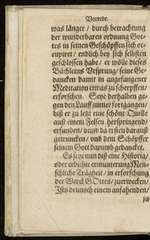 Vorrede.
was länger / durch betrachtung
der wunderbaren ordnung Got-
tes in seinen Geschöpffen sich er-
quicket / endlich bey sich selbsten
geschlossen habe / er wölle dieses
Bächleins Vrsprung / seine Ge-
dancken damit in angefangener
Meditation etwas zu scherpffen /
erforschen. Seye derhalben ge-
gen den Lauff immer fortgangen /
biß er zu letzt eine schöne Quelle
auß einem Felsen herspringend /
erfunden / darab da er sich darauß
getruncken / und dem Schöpffer
seinem Gott darumb gedancket.
Es seye nun diß eine Historia /
oder erdichte ermunterung Men-
schliche Trägheit / in erforschung
der Werck Gottes / zuerwecken /
Ists dennoch einem ansehenden /